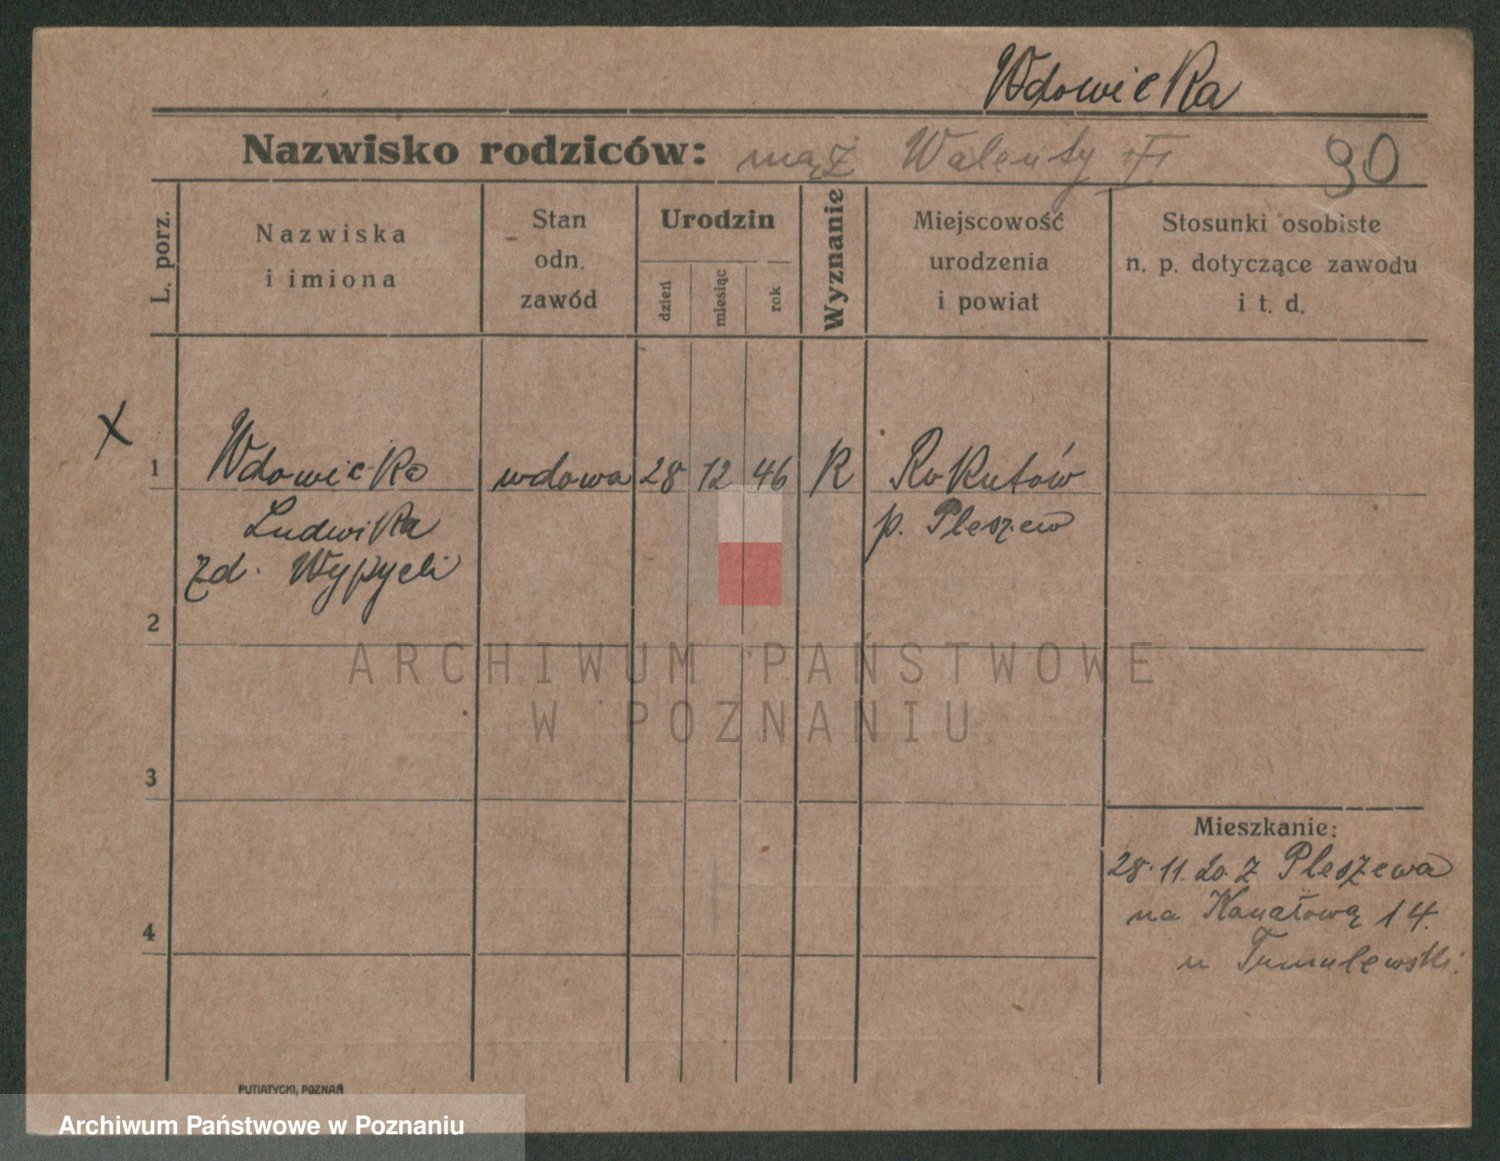 Wdowicka
Nazwisko rodziców: mąż Walenty 90
L. porz.
Nazwiska
i imiona
Stan
odn.
zawód
Urodzin
dzień
miesiąc
rok
Wyznanie
Miejscowość
urodzenia
i powiat
Stosunki osobiste
n. p. dotyczące zawodu
i t. d.
X
1 Wdowicka wdowa 28 12 46 R Rokutów
Ludwika p. Pleszew
zd.
2
ARCHIWUM PAŃSTWOWE
W POZNANIU
3
Mieszkanie:
28.11.20. z Pleszewa
na Kanałową 14.
4
u
PUTIATYCKI, POZNAŃ
Archiwum Państwowe w Poznaniu